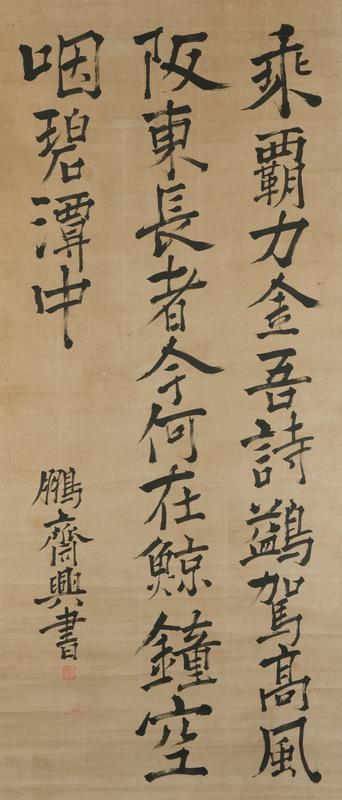 乘霸力金吾詩鷁駕高風
阪東長者今何在鯨鐘空
咽碧潭中
鵬齋興書